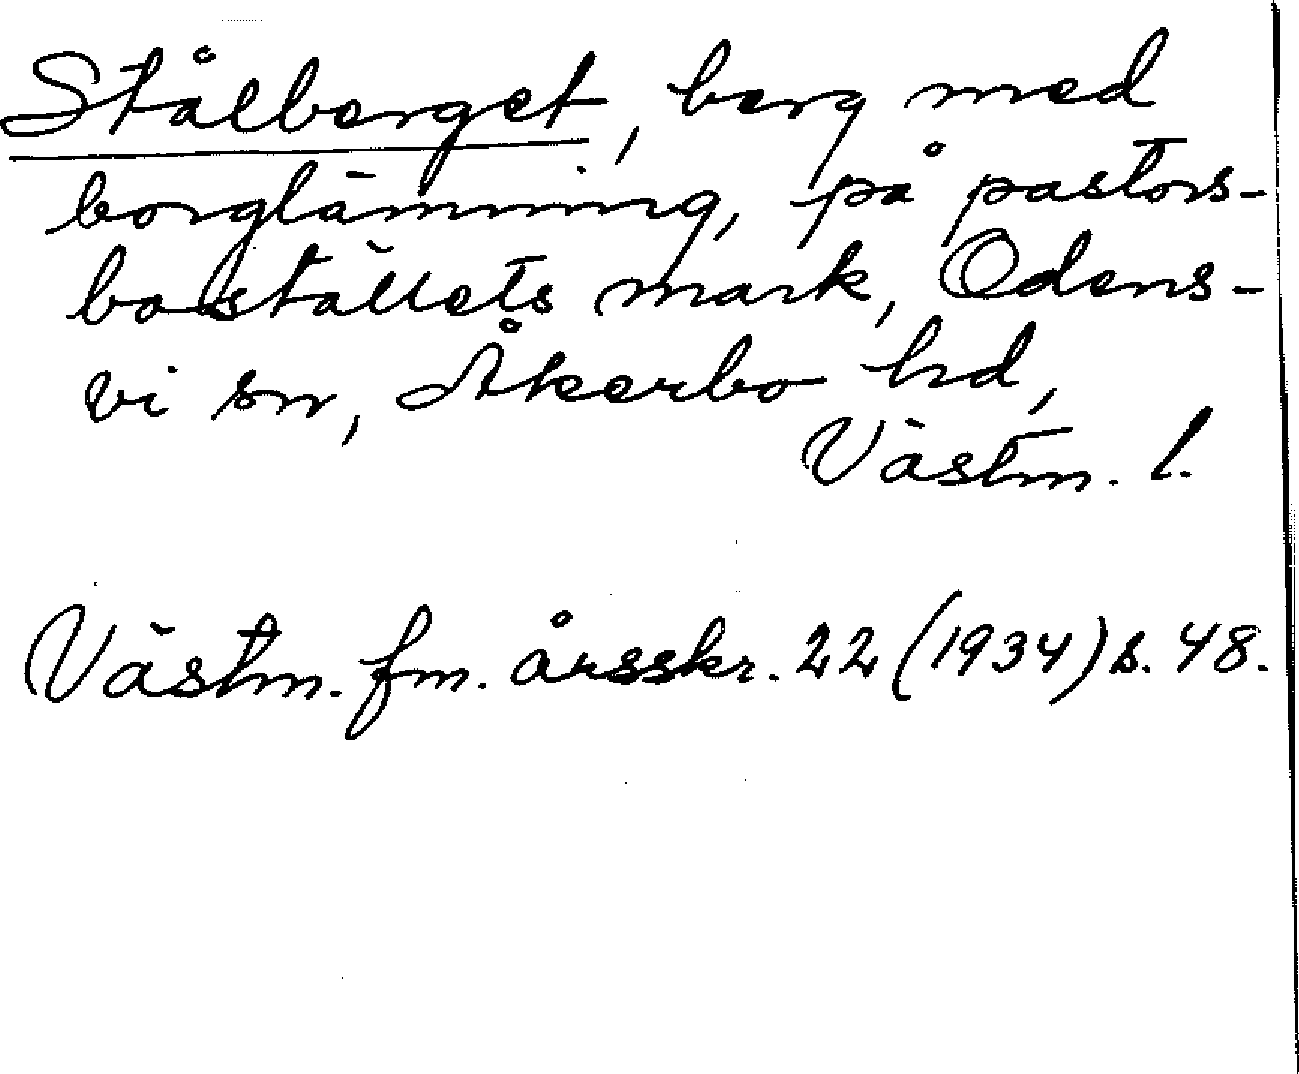 Stålberget, berg med
borglämning, på pastors-
bostállets mark, Odens-
vi sn, Åkerbo hd,
Västm. l.
Västm. fm. årsskr. 22 (1934) s. 48.